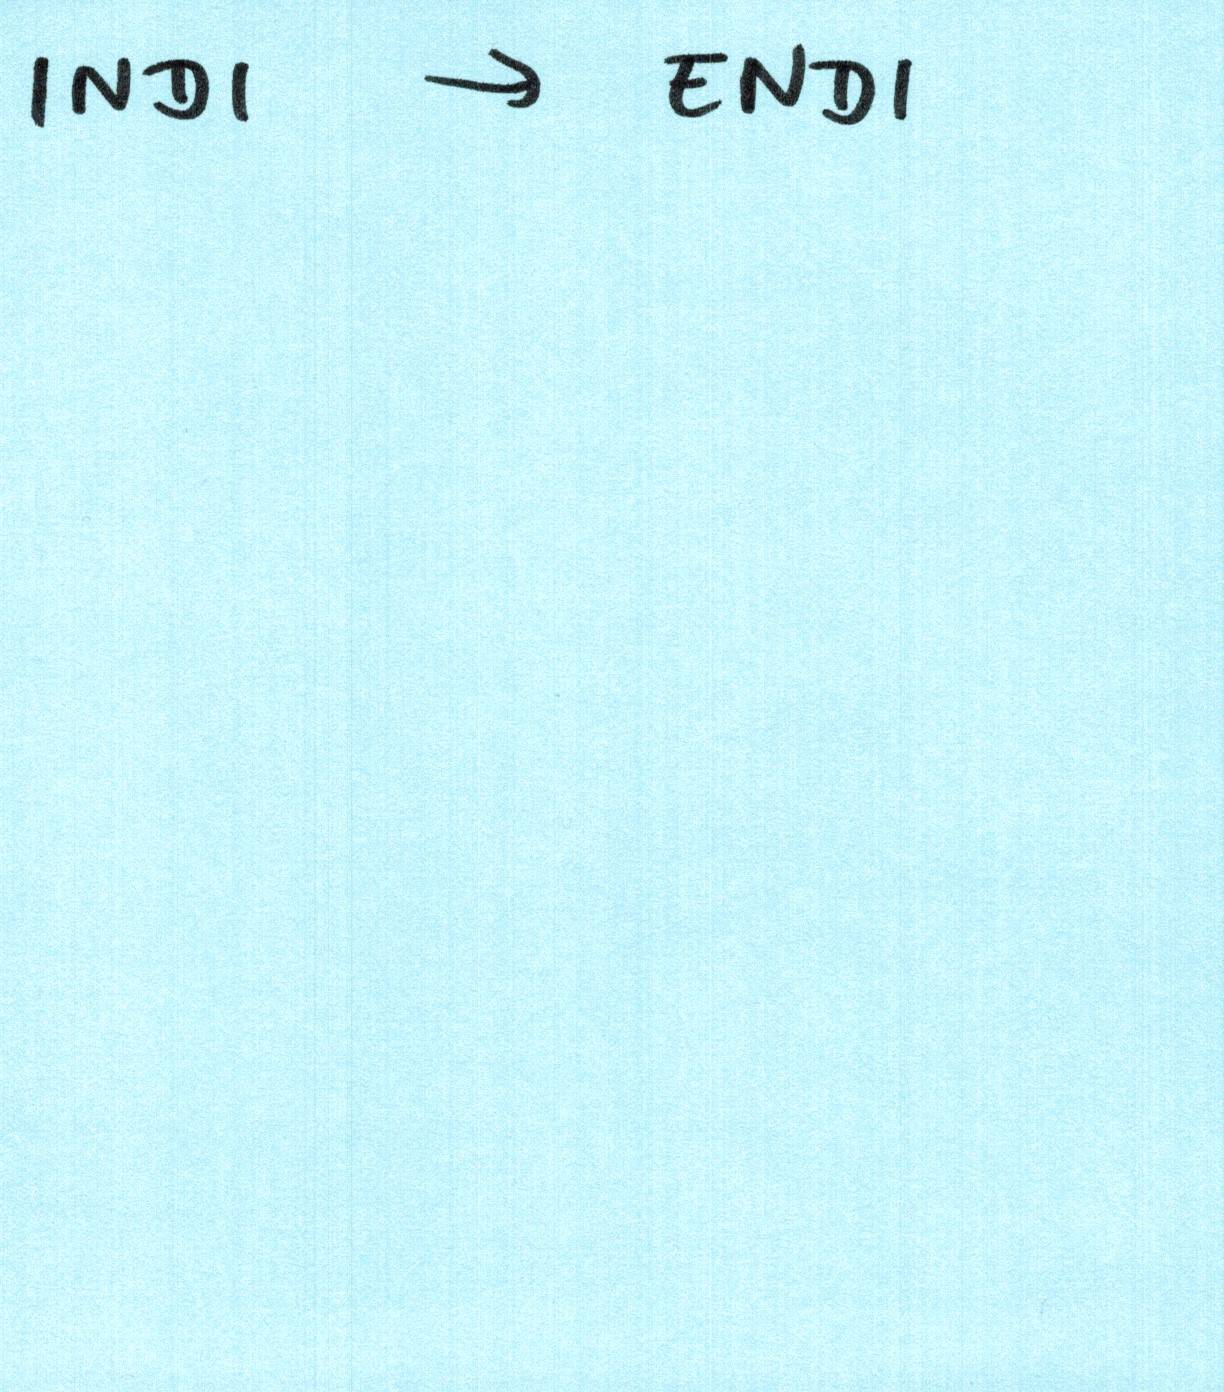 INDI → ENDI